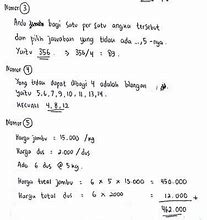 Nomor ③
Anda bagi satu per satu angka tersebut
dan pilih jawaban yang tidak ada ..,5 -nya.
Yaitu 356. → 356/4 : 89.
Nomor ④
Yang tidak dapat dibagi 4 adalah bilangan
yaitu 5,6,7,9,10,11,13,14.
kecuali 4,8,12
Nomor ⑤
Harga jambu = 15.000 /kg
Harga dus = 2.000 / dus
Ada 6 dus @ 5 kg.
Harga total jambu = 6 x 5 x 15.000 = 450.000
Harga total dus = 6 x 2000 = 12.000 +
462.000